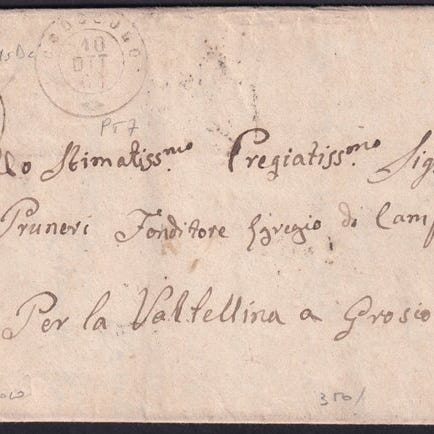 10
PT 7
llo Stimatiss.mo Pregiatiss.mo Sig
Pruneri Fonditore Egregio di Camp
Per la Valtellina a Grosio
350/